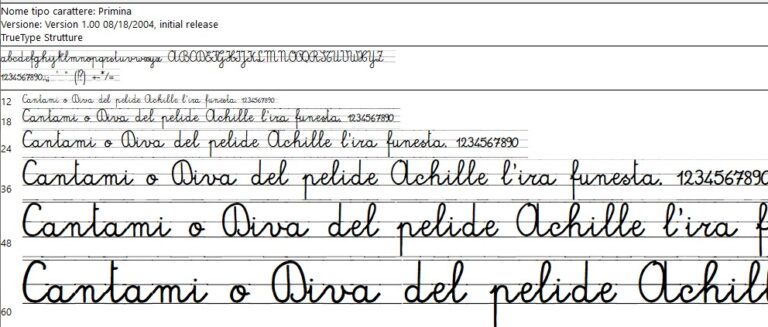 Nome tipo carattere: Primina
Versione: Version 1.00 08/18/2004, initial release
TrueType Strutture
abcdefghyklmnopqrstuvwxyz ABCDEFGHIJKLMNOPQRSTUVWXYZ
1234567890.:, ' " (!?) +-*/=
12 Cantami o Diva del pelide Achille l'ira funesta. 1234567890
18 Cantami o Diva del pelide Achille l'ira funesta. 1234567890
24 Cantami o Diva del pelide Achille l'ira funesta. 1234567890
36 Cantami o Diva del pelide Achille l'ira funesta. 1234567890
48 Cantami o Diva del pelide Achille l'ira f
60 Cantami o Diva del pelide Achill